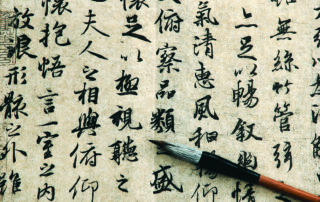 無絲竹管弦
足以暢敘幽情
氣清惠風和暢仰
俯察品類盛
懷足以極視聽之
夫人之相與俯仰
懷抱悟言一室之內
放浪形骸之外雖